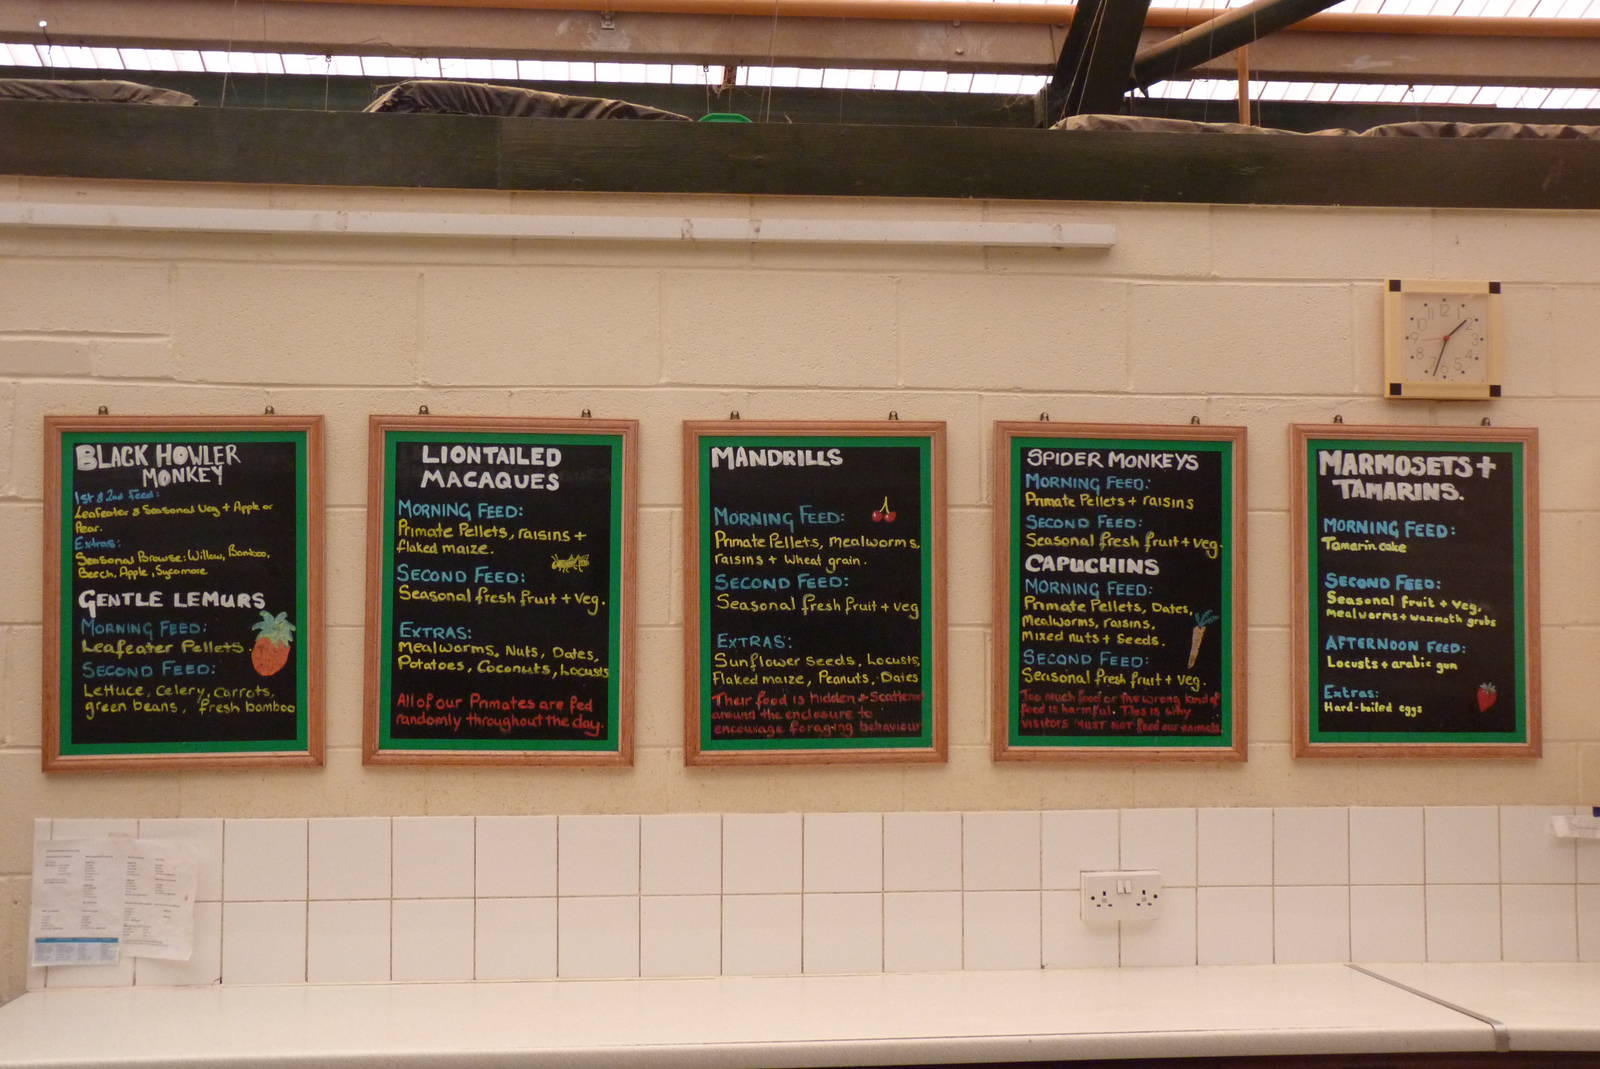 BLACK HOWLER
MONKEY
1st & 2nd Feed:
Leafeater & Seasonal Veg + Apple or
Pear.
Extras:
Seasonal Browse: Willow, Bamboo,
Beech, Apple, Sycamore
GENTLE LEMURS
MORNING FEED:
Leafeater Pellets.
SECOND FEED:
Lettuce, Celery, Carrots,
green beans, fresh bamboo
LIONTAILED
MACAQUES
MORNING FEED:
Primate Pellets, raisins +
flaked maize.
SECOND FEED:
Seasonal fresh fruit + veg.
EXTRAS:
Mealworms, Nuts, Dates,
Potatoes, Coconuts, Locusts
All of our Primates are fed
randomly throughout the day.
MANDRILLS
MORNING FEED:
Primate Pellets, mealworms,
raisins + wheat grain.
SECOND FEED:
Seasonal fresh fruit + veg
EXTRAS:
Sunflower seeds, Locusts,
Flaked maize, Peanuts, Dates
Their food is hidden & Scattered
around the enclosure to
encourage foraging behaviour
SPIDER MONKEYS
MORNING FEED:
Primate Pellets + raisins
SECOND FEED:
Seasonal fresh fruit + veg.
CAPUCHINS
MORNING FEED:
Primate Pellets, Dates,
Mealworms, raisins,
mixed nuts + seeds.
SECOND FEED:
Seasonal fresh fruit + veg.
Too much food or the wrong kind of
food is harmful. This is why
visitors MUST NOT feed our animals.
MARMOSETS +
TAMARINS.
MORNING FEED:
Tamarin cake
SECOND FEED:
Seasonal fruit + veg,
mealworms + waxmoth grubs
AFTERNOON FEED:
Locusts + arabic gum
Extras:
Hard-boiled eggs
12
1
2
3
4
5
6
7
8
9
10
11